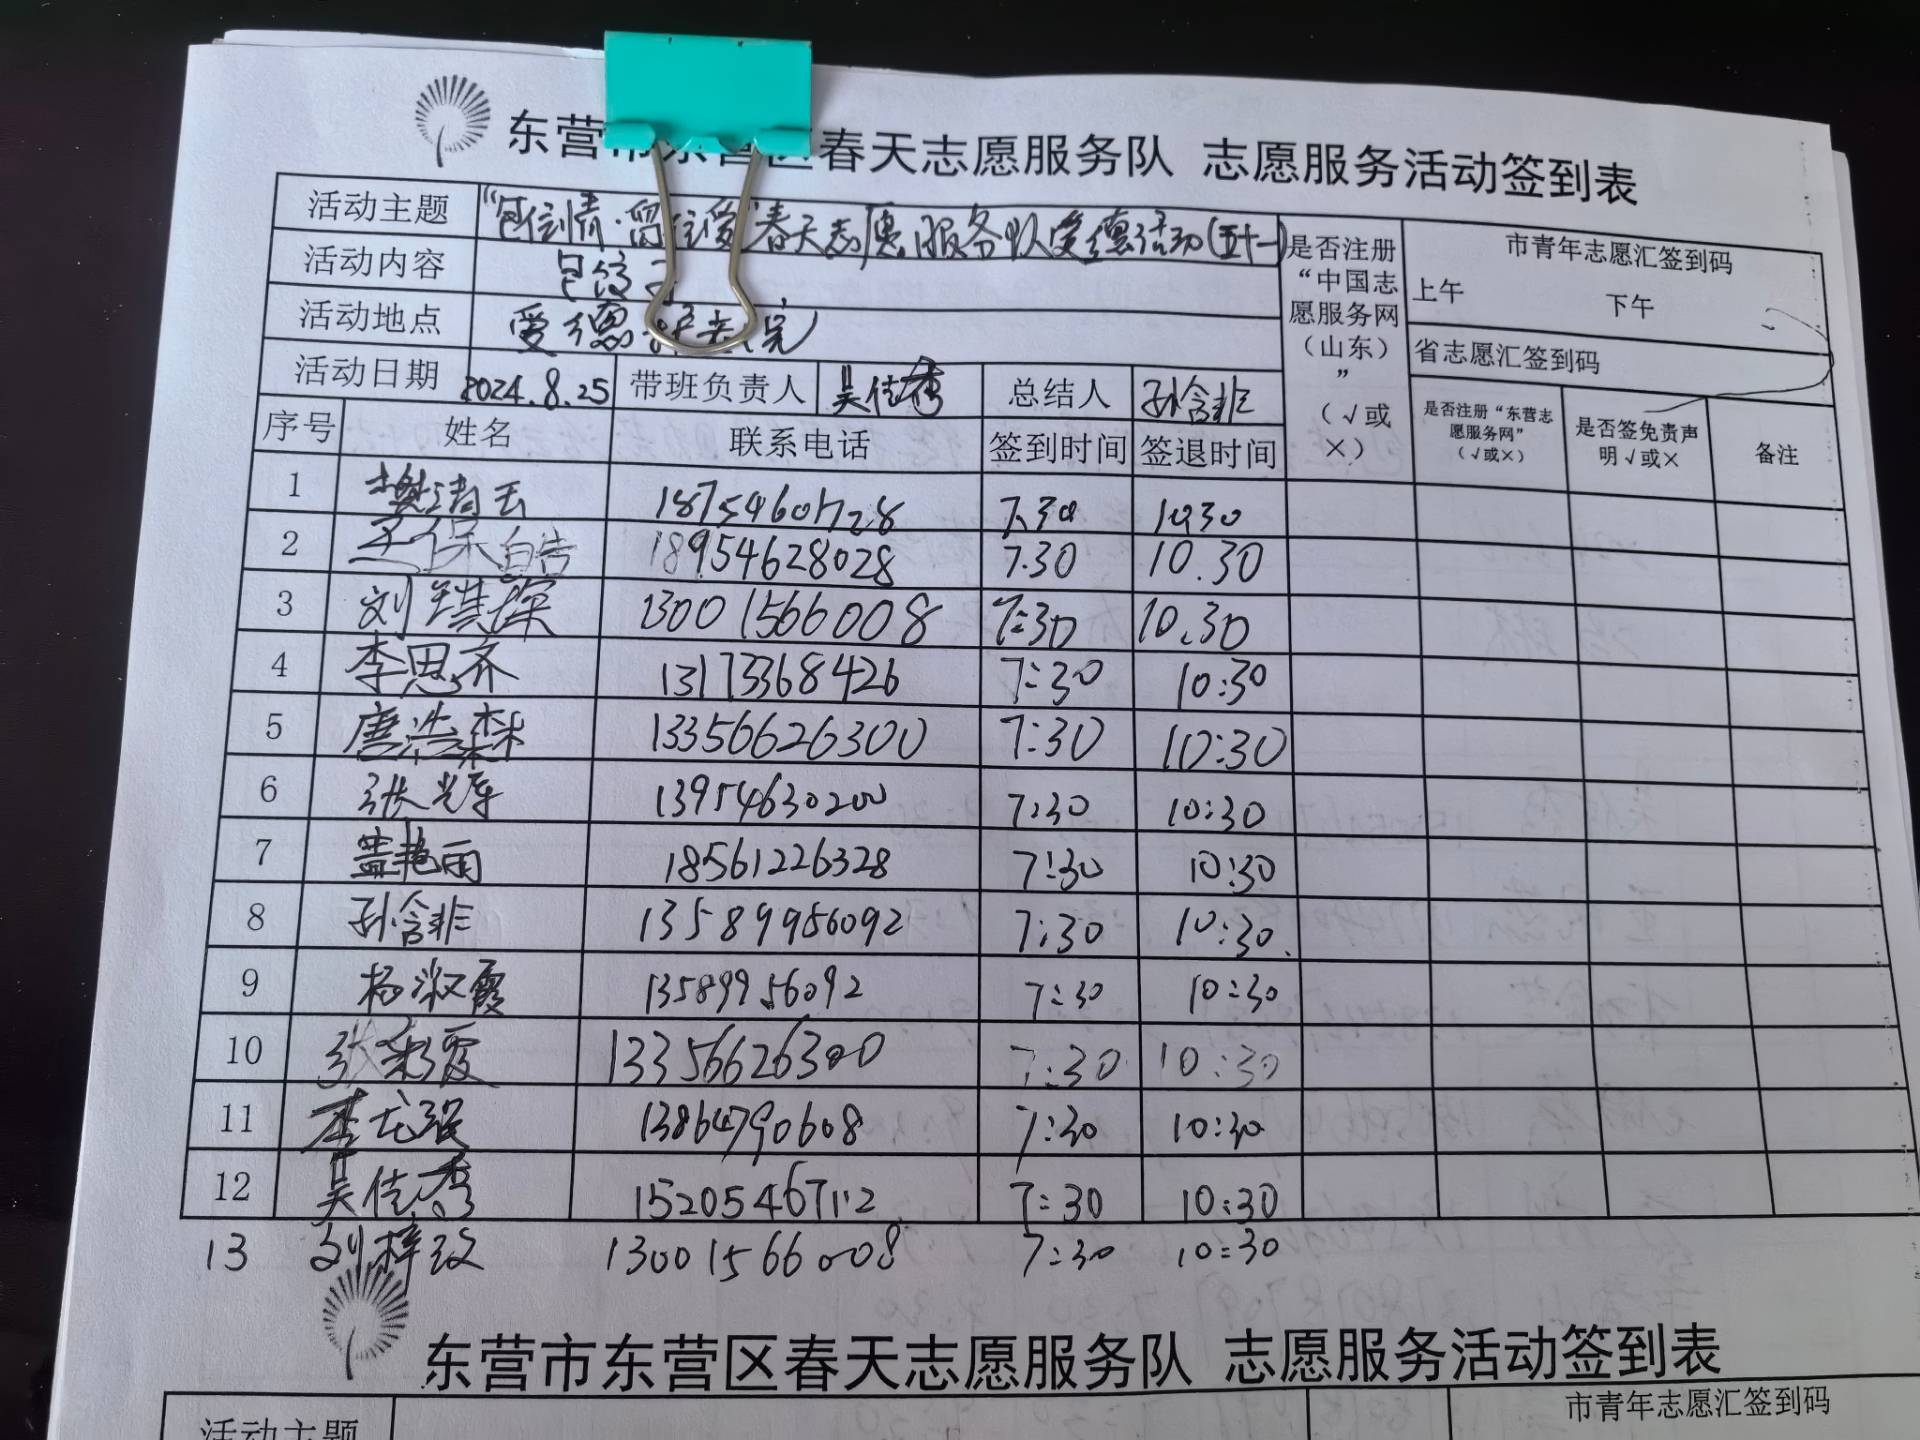 东营市东营区春天志愿服务队 志愿服务活动签到表
活动主题 "包住情·留住爱"春天志愿服务队爱德活动(五十一)
活动内容 包饺子
活动地点 爱德养老院
活动日期 2024.8.25 带班负责人 吴佳秀 总结人 孙含非
是否注册“中国志愿服务网（山东）”（√或×）
市青年志愿汇签到码
上午 下午
省志愿汇签到码
序号 姓名 联系电话 签到时间 签退时间 是否注册“东营志愿服务网”（√或×） 是否签免责声明√或× 备注
1 18754601728 7.30 10.30
2 18954628028 7.30 10.30
3 刘 13001566008 7:30 10.30
4 李思齐 13173368426 7:30 10:30
5 唐浩森 13356626300 7:30 10:30
6 张光军 13954630200 7:30 10:30
7 盖艳雨 18561226328 7:30 10:30
8 孙含非 13589956092 7:30 10:30
9 杨淑霞 13589956092 7:30 10:30
10 张彩霞 13356626300 7:30 10:30
11 李龙强 13864790608 7:30 10:30
12 吴佳秀 15205467112 7:30 10:30
13 刘梓 13001566008 7:30 10:30
东营市东营区春天志愿服务队 志愿服务活动签到表
活动主题
市青年志愿汇签到码